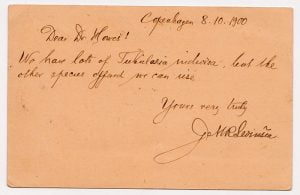 Copenhagen 8.10.1900
Dear Dr Howe!
We have lots of Tubularia indivisa, but the
other species offered we can use
Yours very truly